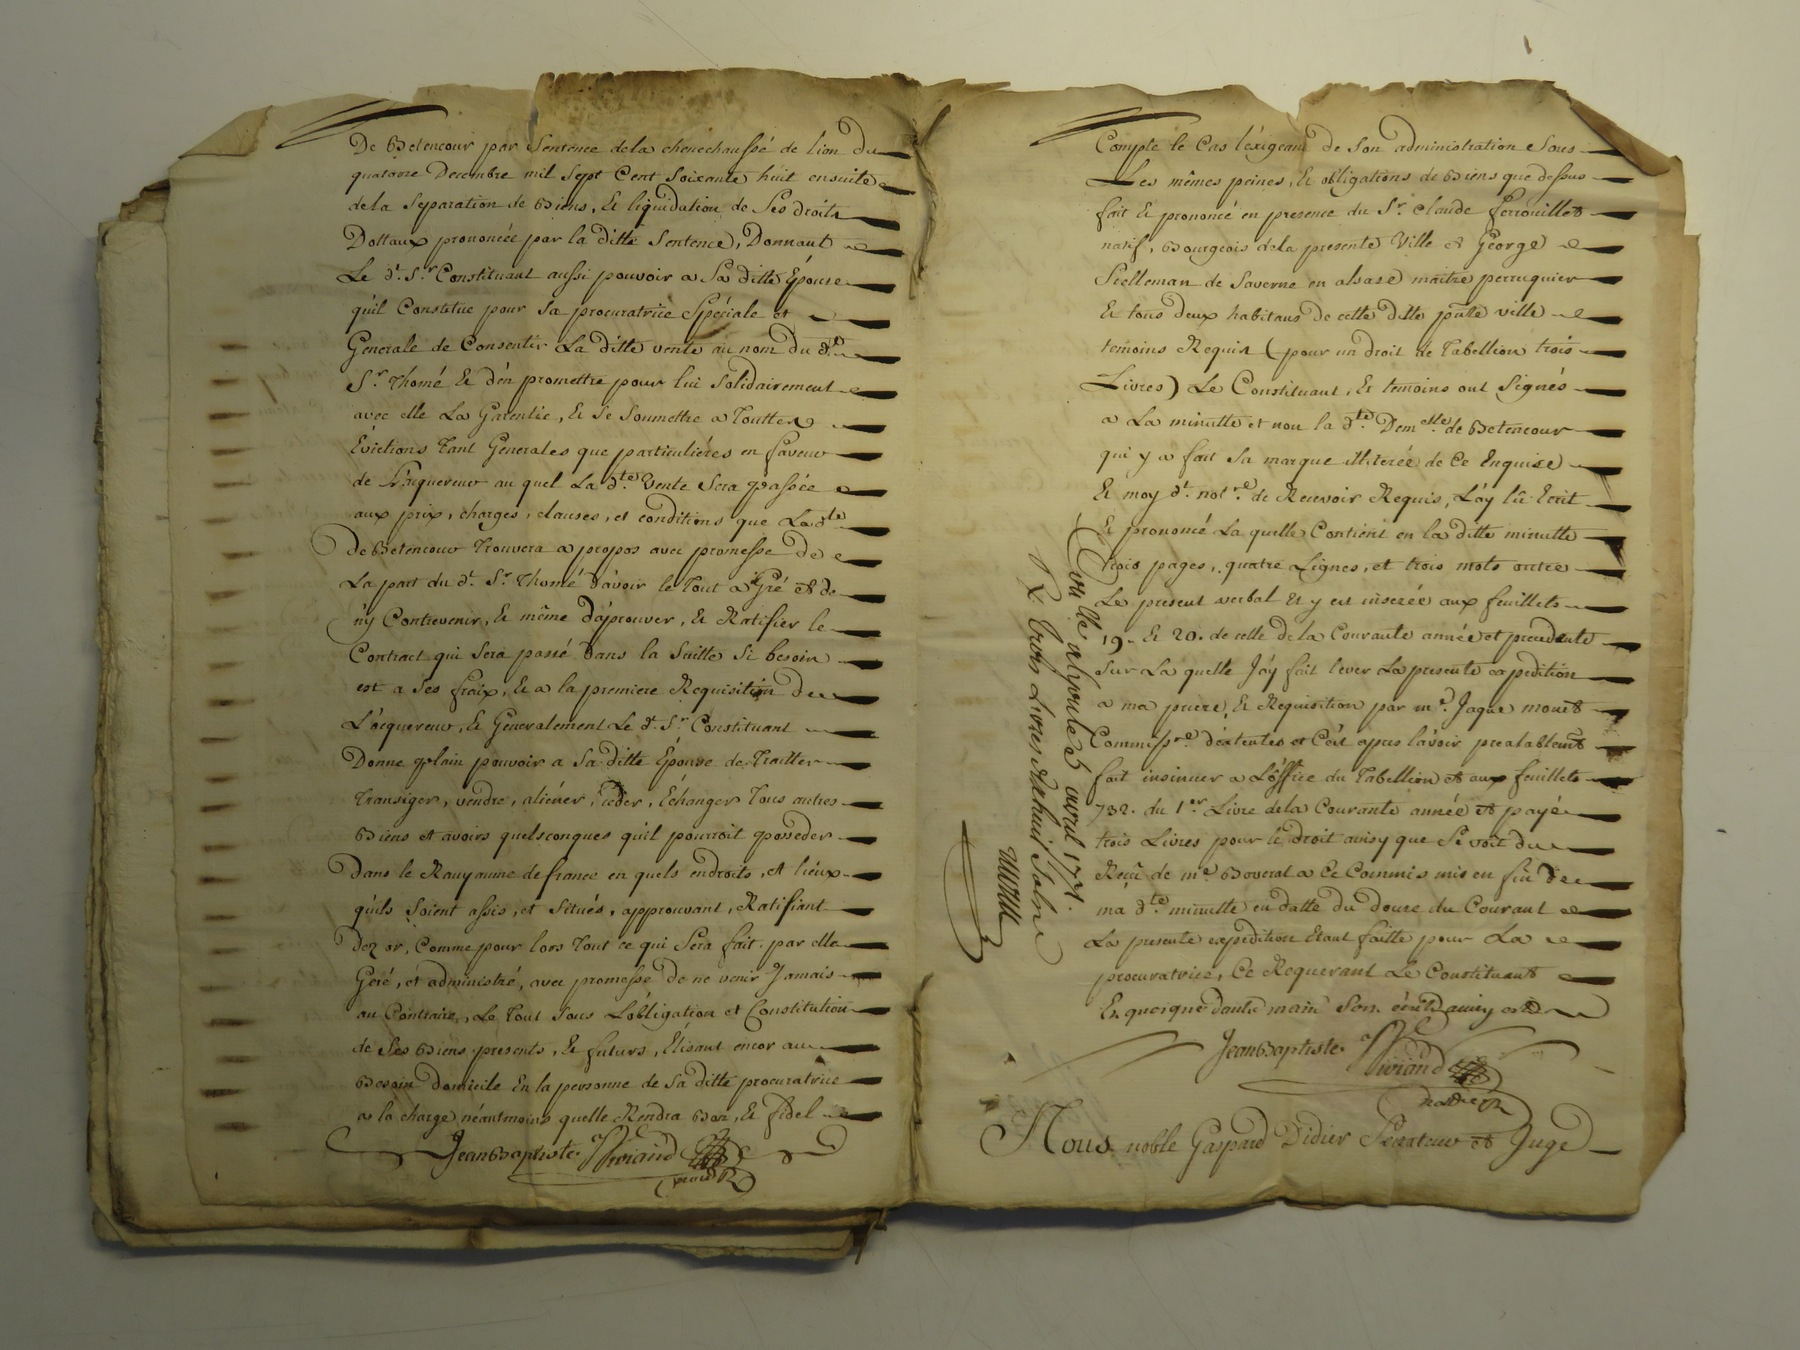 De Betencour par Sentence dela chenechaussé de lion du
quatorze Decembre mil Sept Cent Soixante huit ensuite
dela Separation de Biens, Et liquidation de Ses droits
Dottaux prononcée par la ditte Sentence, Donnant
Le dt. Sr. Constituant aussi pouvoir a Sa ditte Epouse
qu'il Constitue pour Sa procuratrice Spéciale et
Generale de Consentir La ditte vente au nom du dt.
Sr. Thomé Et d'en promettre pour lui Solidairement
avec elle La Garentie, Et Se Soumettre a Touttes
Evictions Tant Generales que particulières en faveur
de L'acquereur au quel La dte. Vente Sera passée
aux prix, charges, clauses, et conditions que La dte
De Betencour Trouvera a propos avec promesse de
La part du dt. Sr. Thomé d'avoir le Tout a Gré et de
n'y Contrevenir, Et même d'aprouver, Et Ratifier le
Contract qui Sera passé dans la Suitte Si besoin
est a Ses fraix, Et a la premiere Requisition de
L'acquereur, Et Generalement Le dt. Sr. Constituant
Donne plain pouvoir a Sa ditte Epouse de Traitter
Transiger, vendre, aliéner, ceder, Echanger Tous autres
Biens et avoirs quelsconques qu'il pourroit posseder
Dans le Rauyaume de france en quels endroits, et lieux
qu'ils Soient assis, et Situés, approuvant, Ratifiant
Dez or, Comme pour lors Tout ce qui Sera fait par elle
Geré, et administré, avec promesse de ne venir Jamais
au Contraire, Le Tout Sous L'obligation et Constitution
de Ses Biens presents, Et futurs, Elisant encor au
Besoin domicile En la personne de Sa ditte procuratrice
a la charge néantmoins quelle Rendra Bon, Et fidel
Jean Baptiste Viviand
Compte le Cas l'éxigeant de Son administration Sous
Les mêmes peines, Et obligations de Biens que dessus
fait Et prononcé en presence du Sr. Claude Perouillet
natif, Bourgeois dela presente Ville et George
Stelleman de Saverne en alsase maître perruquier
Et tous deux habitans de cette ditte pnte ville
temoins Requis (pour un droit de Tabellion trois
Livres) Le Constituant, Et temoins ont Signés
a La minutte et non la dte. Demelle. de Betencour
qui y a fait Sa marque illiterée de Ce Enquise
Et moy dt. notre. de Recevoir Requis, L'ay lû Ecrit
Et prononcé La quelle Contient en la ditte minutte
trois pages, quatre Lignes, et trois mots outre
Le present verbal Et y est inserée aux feuillets
19. Et 20. de celle dela Courante année et precedente
Sur La quelle J'ay fait lever La presente expedition
a ma priere, Et Requisition par me. Jaque monet
Commissre. d'extentes et C'est apres l'avoir prealablemt
fait insinuer a L'office du Tabellion et aux feuillets
732. du 1er. Livre dela Courante année et payé
trois Livres pour le droit ainsy que Se voit du
Reçu de me. Boveral a Ce Commis mis en fin de
ma dte. minutte en datte du douze du Courant
La presente expedition Etant faitte pour La
procuratrice, Ce Requerant Le Constituant
Et quoique dautre main Son écrite ainsy est
Jean Baptiste Viviand
notaire
Nous noble Gaspard Didier Senateur et Juge
avril 1771.
R. trois Livres